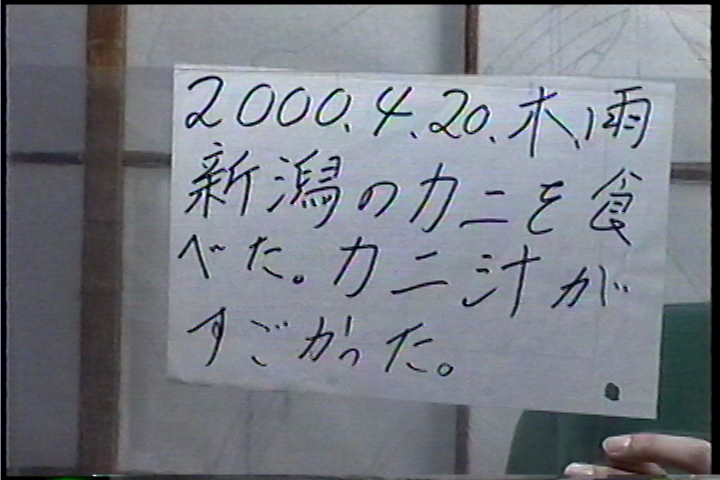 2000.4.20.木、雨
新潟のカニを食
べた。カニ汁が
すごかった。